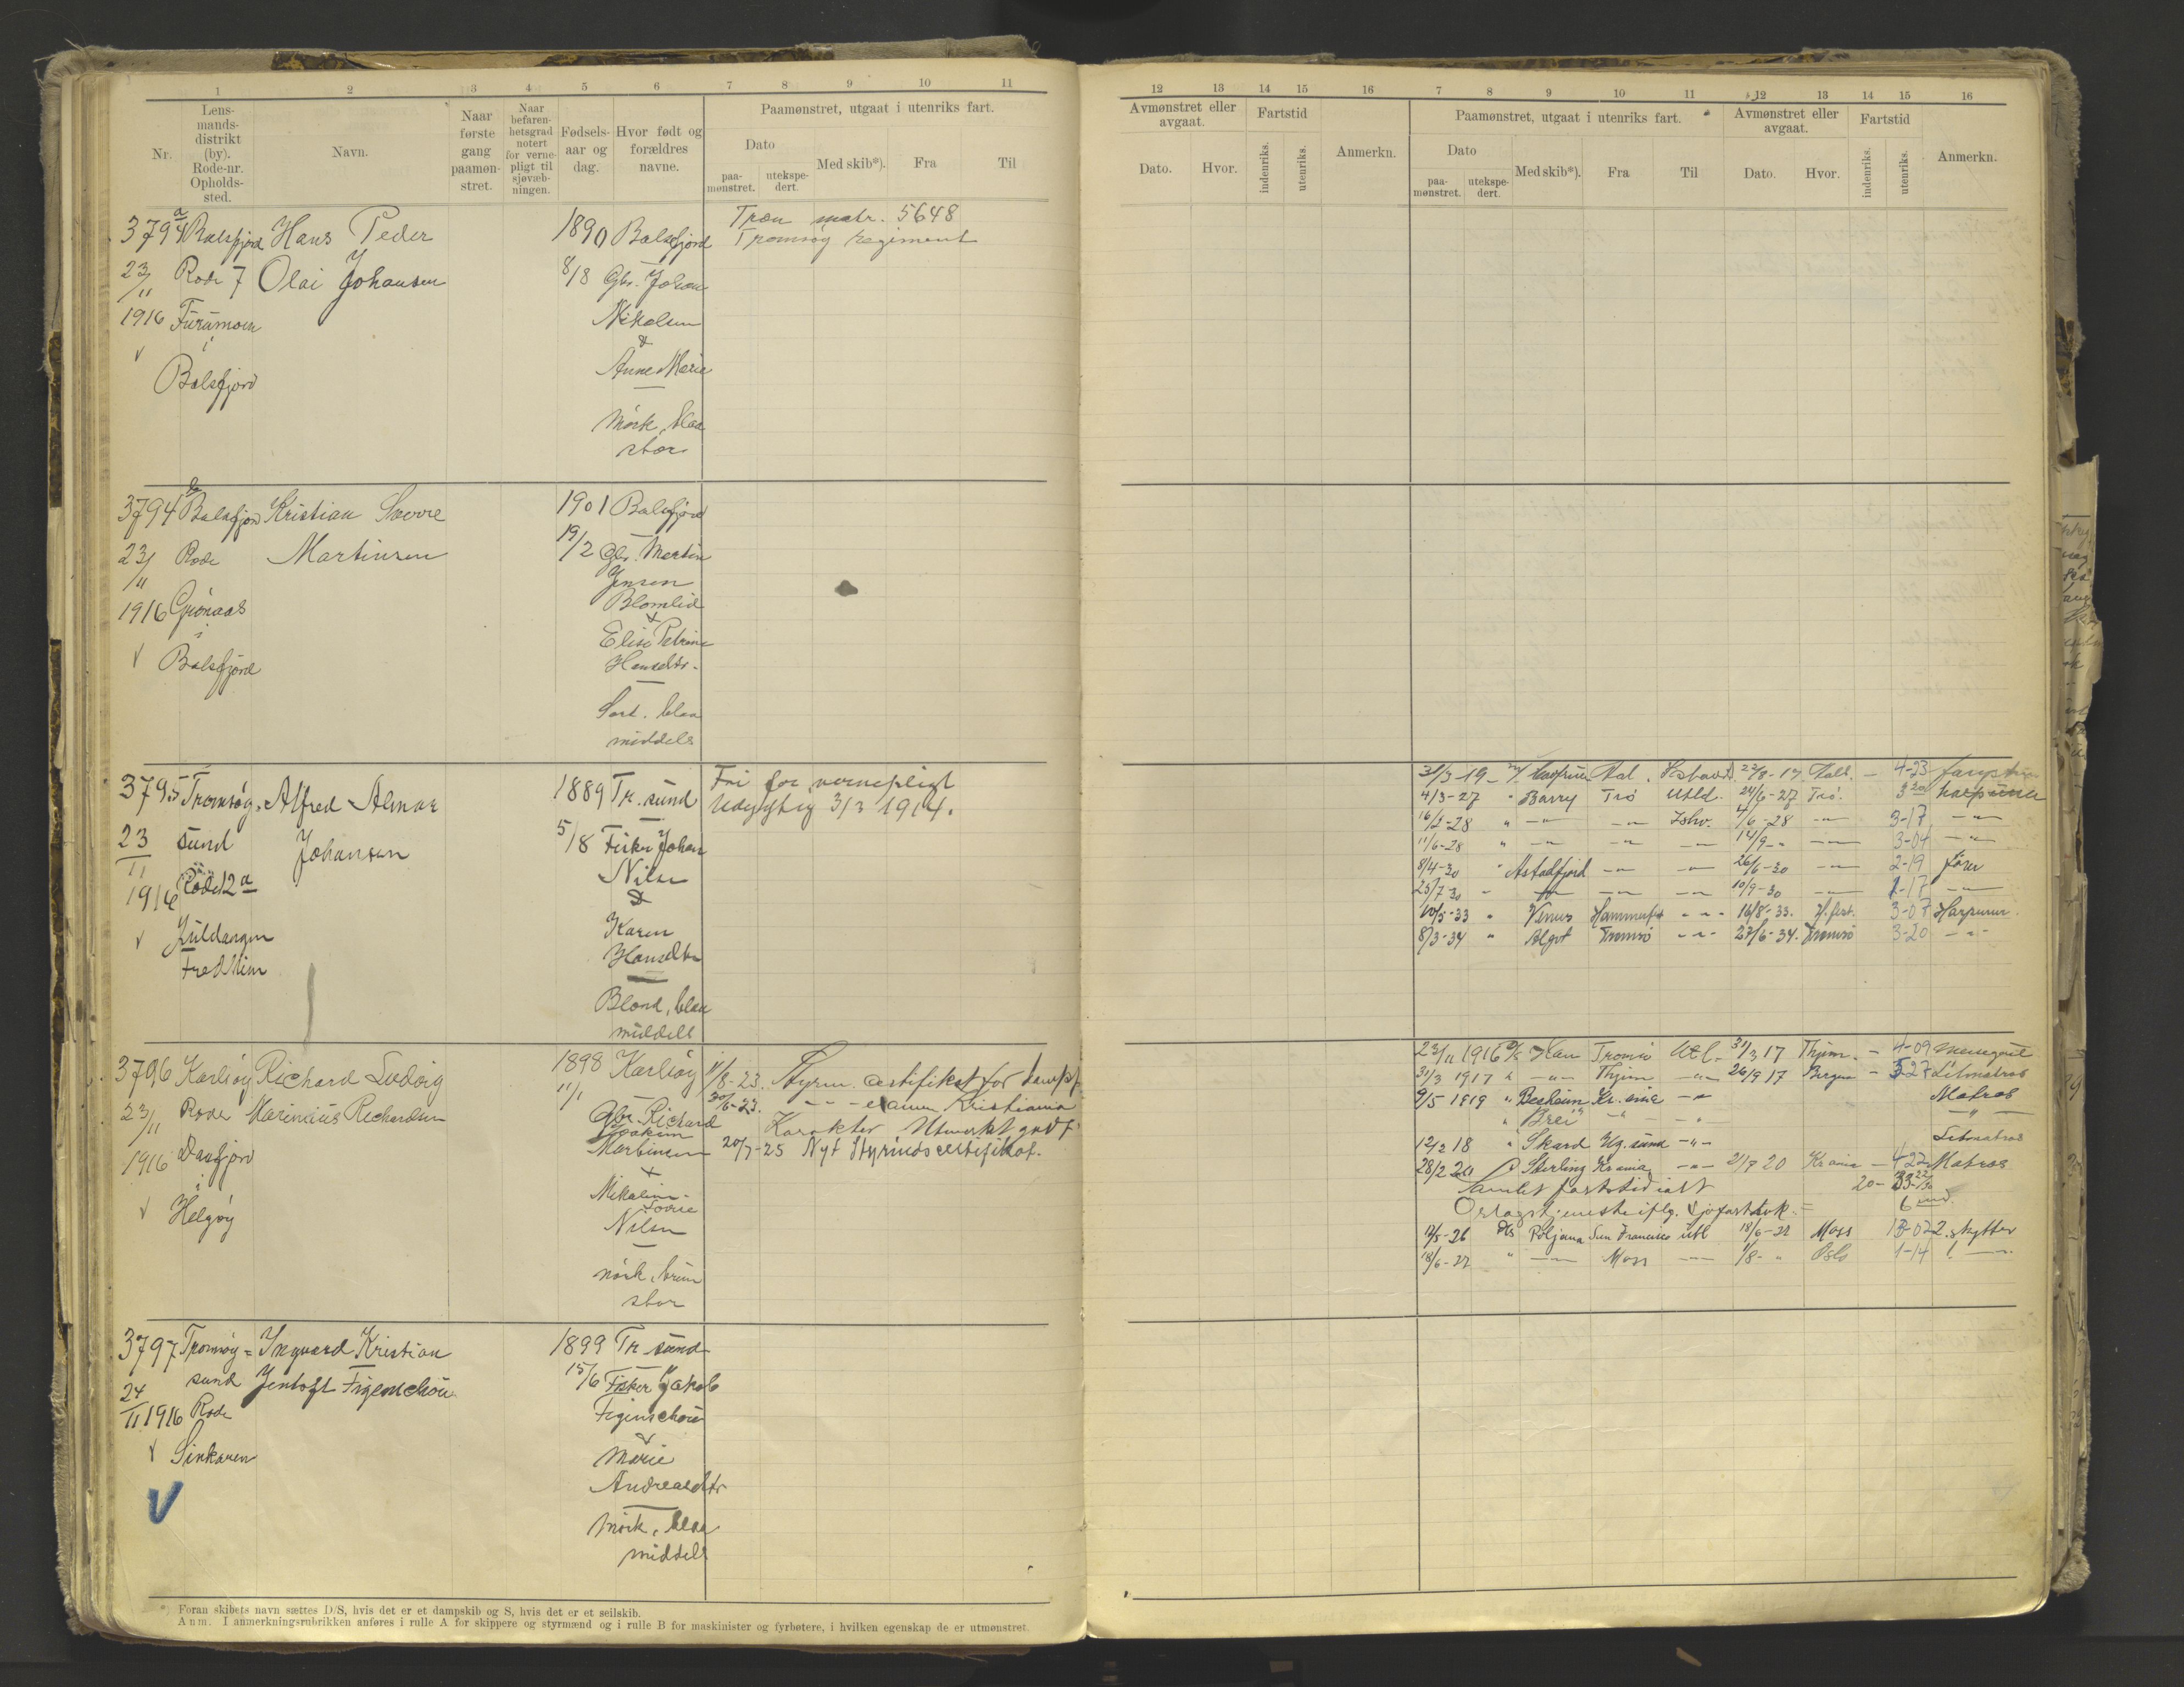 1 2 3 4 5 6 7 8 9 10 11
Nr. Lensmandsdistrikt (by). Rode-nr. Opholdssted. Navn. Naar første gang paamønstret. Naar befarenhetsgrad notert for vernepligt til sjøvæbningen. Fødselsaar og dag. Hvor født og forældres navne. Paamønstret, utgaat i utenriks fart.
Dato Med skib*). Fra Til
paamønstret. utekspedert.
3794 a Balsfjord Hans Peder 1890 Balsfjord Træn matr. 5648
Tromsøy regiment
23/11 Rode 7 Olai Johansen 8/8 Gbr. Johan
1916 Furumoen Nikolsen
i &
Balsfjord Anne Marie
Mørk, blaa
stor
3794 b Balsfjord Kristian Snorre 1901 Balsfjord
23/11 Rode Martinsen 19/2 Gbr. Martin
Jensen
1916 Grönaas Blomlid
i &
Elise Petrine
Balsfjord Hansdtr.
Sort. blaa
middels
3795 Tromsøy- Alfred Almar 1889 Tr. sund Fri for vernepligt
Udygtig 3/3 1914.
23/11 sund Johansen 5/8 Fisker Johan
Nilsen
1916 Rode 12 a &
Karen
Kuldangen Hansdtr
Fredheim
Blond, blaa
middels
3796 Karlsöy Richard Ludvig 1898 Karlsöy 11/8-23. Styrm. certifikat for damps.
23/11 Rode Marinius Richardsen 11/1 Gbr. Richard 30/6-23. - " - examen Kristiania
Joakim Karakter Utmerket godt
1916 Dasfjord Martinsen 20/7-25 Nyt Styrmdscertifikat.
i &
Helgøy Mikaline
Lovise
Nilsen
mörk, brun
stor
3797 Tromsöy- Ingvard Kristian 1899 Tr. sund
24/11 1916 sund Jentoft Figenschou 15/6 Fisker Jakob
Rode Figenschou
Sinkaren &
Marie
Andreasdtr
Mörk, blaa
middels
*) Foran skibets navn sættes D/S, hvis det er et dampskib og S, hvis det er et seilskib.
Anm. I anmerkningsrubrikken anføres i rulle A for skippere og styrmænd og i rulle B for maskinister og fyrbøtere, i hvilken egenskap de er utmønstret.
12 13 14 15 16 7 8 9 10 11 12 13 14 15 16
Avmønstret eller avgaat. Fartstid Anmerkn. Paamønstret, utgaat i utenriks fart. Avmønstret eller avgaat. Fartstid Anmerkn.
Dato. Hvor. indenriks. utenriks. Dato Med skib*). Fra Til Dato. Hvor. indenriks. utenriks.
paamønstret. utekspedert.
31/3-19 - 4-23
4/3-27 " Barry Trö Utld. 24/6-27 Trö. 3 20 harpuner
16/2-28 " -"- -"- Ishv. 4/6-28 -"- 3-17 -"-
11/6-28 " -"- -"- -"- 14/9-" -"- 3-04 -"-
8/4-30 " Astadfjord -"- -"- 26/6-30 -"- 2-19 förer
25/7-30 " -"- -"- -"- 10/9-30 -"- 1-17 -"-
10/5-33 " Venus Hammerfst -"- 16/8-33. H.fest. 3-07 Harpuner
8/3-34 " Algot Tromsö -"- 27/6-34. Tromsö 3-20 -"-
23/11 1916 Tromsö Utl. 31/3 17 Thjem. - 4-09
31/3 1917 " -"- Thjem -"- 26/9 17 Bergen - 5 27 Letmatros
9/5 1919 " Besheim Kr. ania -"- Matros
" Brei -"- -"- -"-
12/2 18 " Skard Hg. sund -"- Letmatros
28/2 20 Sterling Kr ania -"- 21/7 20 Kr ania - 4 22 Matros
Samlet fartstid ialt 20-
Orlogstjeneste iflg. sjöfartsbok = 6 md.
12/5-26 D/s Poljana San Francisco utl 18/6-27 Moss 13-07 2. skytter
18/6-27 " -"- Moss -"- 1/8-" Oslo 1-14 1. -"-